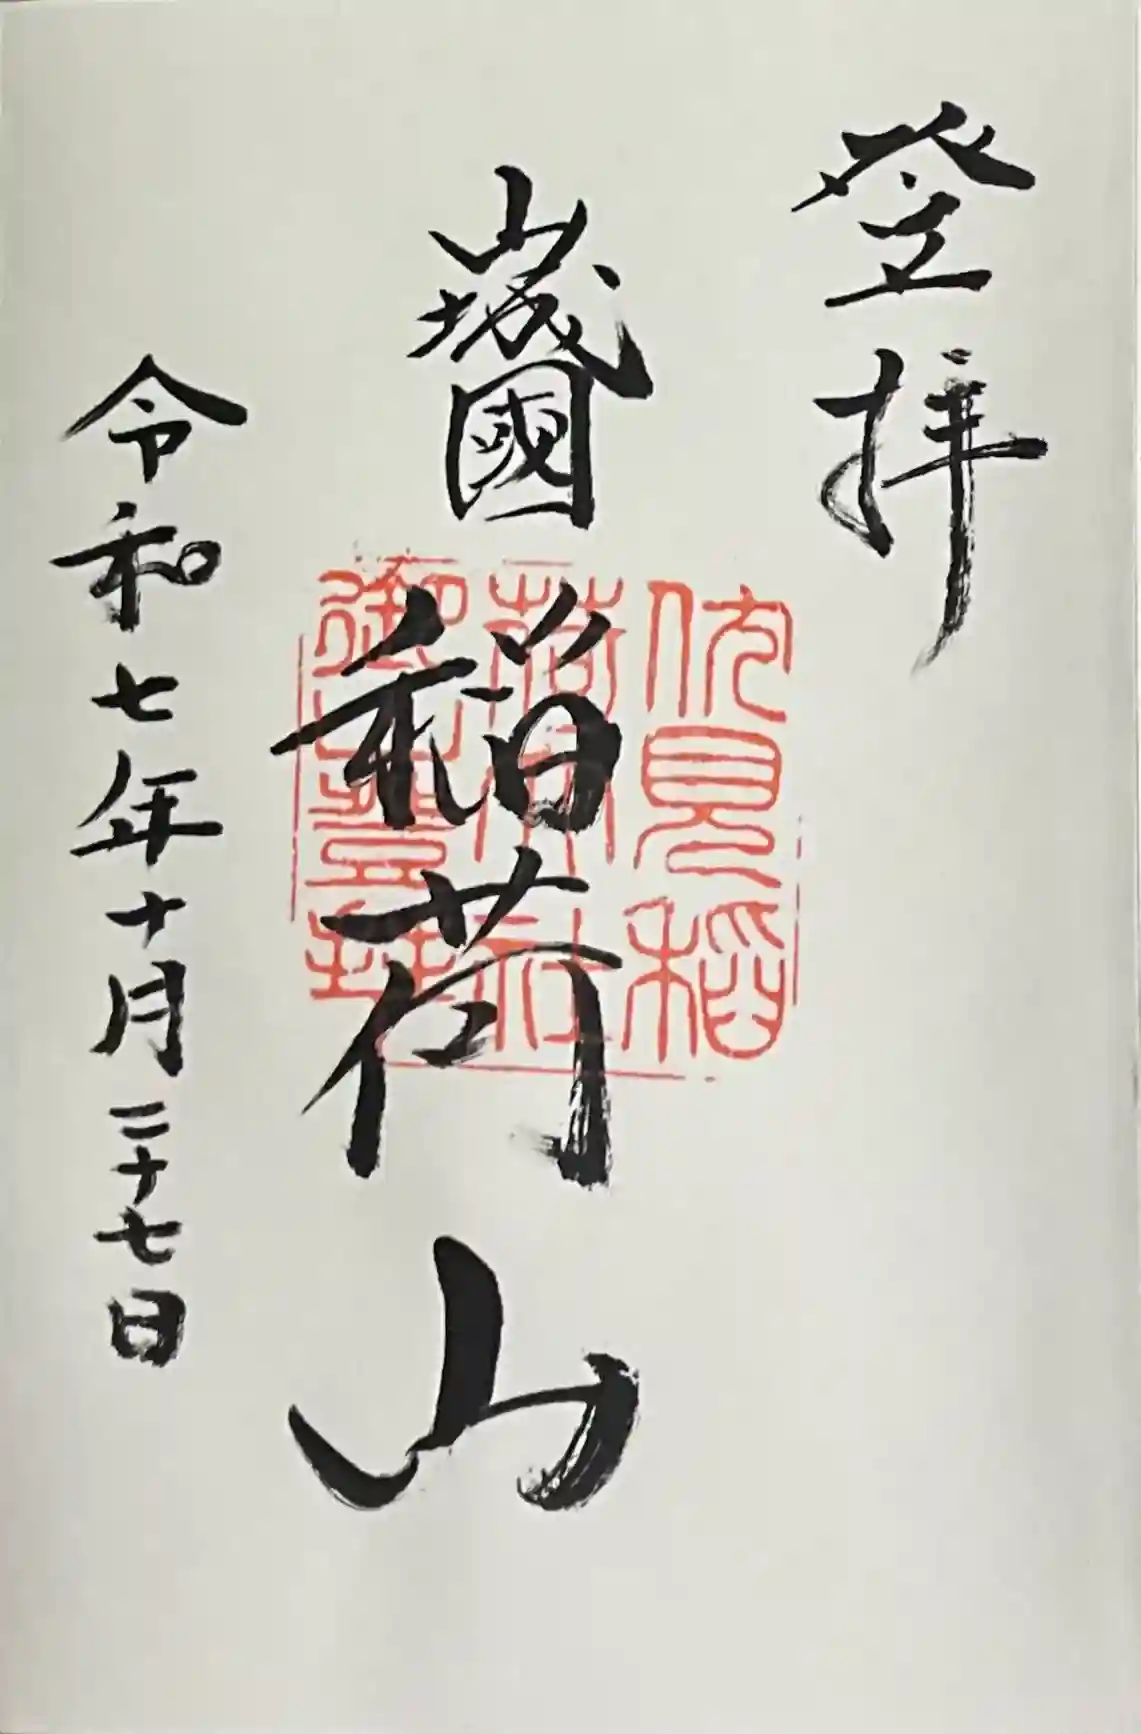 登拝
山城國
稲荷山
令和七年十月二十七日
伏見稲
荷大社
御